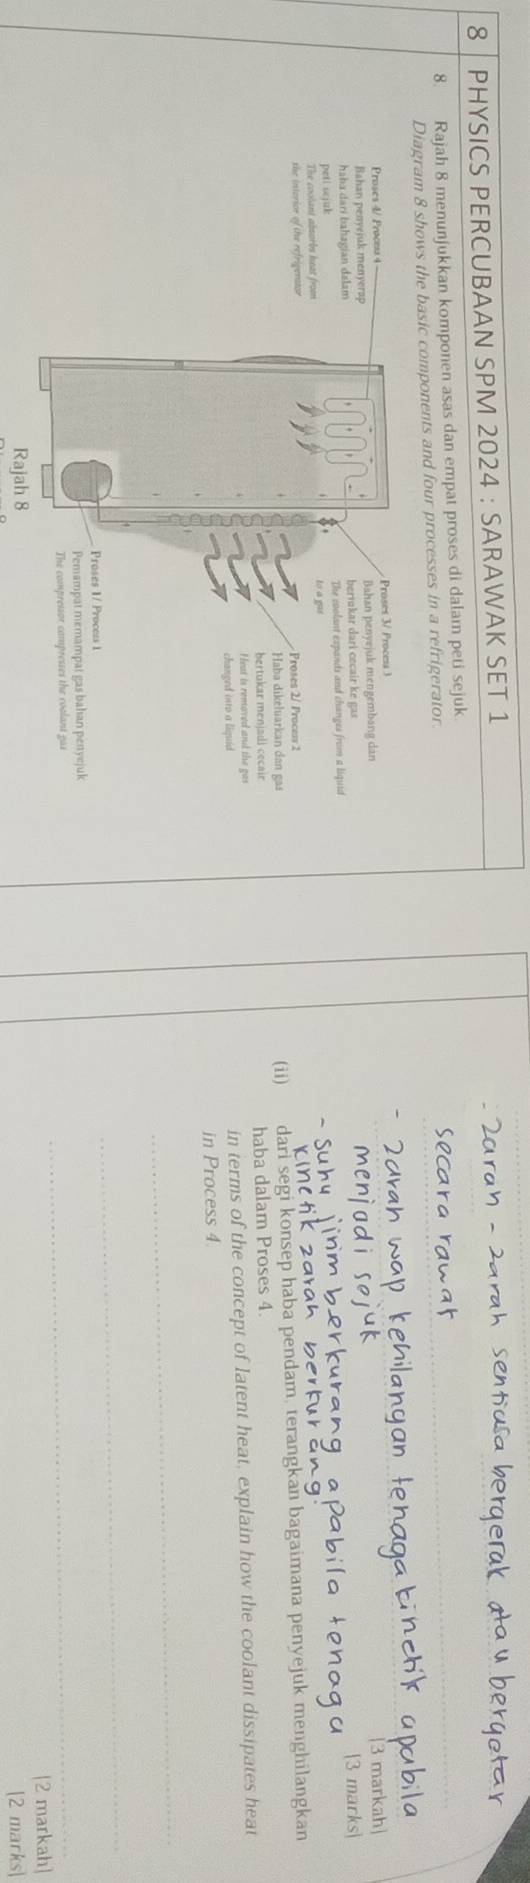 8 PHYSICS PERCUBAAN SPM 2024 : SARAWAK SET 1
8. Rajah 8 menunjukkan komponen asas dan empat proses di dalam peti sejuk.
Diagram 8 shows the basic components and four processes in a refrigerator.
Proses 4/ Process 4
Bahan penyejuk menyerap
haba dari bahagian dalam
peti sejuk
The coolant absorbs heat from
the interior of the refrigerator
Proses 3/ Process 3
Bahan penyejuk mengembang dan
bertukar dari cecair ke gas
The coolant expands and changes from a liquid
to a gas
Proses 2/ Process 2
Haba dikeluarkan dan gas
bertukar menjadi cecair
Heat is removed and the gas
changed into a liquid
Proses 1/ Process 1
Pemampat memampat gas bahan penyejuk
The compressor compresses the coolant gas
Rajah 8
- Zarah - zarah sentiasa bergerak atau bergetar
secara rawak
- zarah wap kehilangan tenaga kinetik apabila
menjadi sejuk
[3 markah]
[3 marks]
- suhu jirim berkurang apabila tenaga
kinetik zarah berkurang.
(ii) dari segi konsep haba pendam, terangkan bagaimana penyejuk menghilangkan
haba dalam Proses 4.
in terms of the concept of latent heat, explain how the coolant dissipates heat
in Process 4.
[2 markah]
[2 marks]